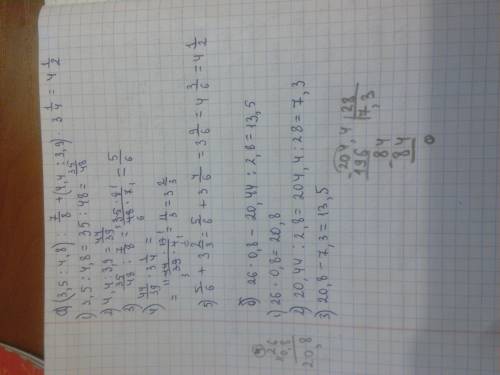 а) (3,5 : 4,8) : 7/8 + (4,4 : 3,9) · 3 1/4 = 4 1/2
1) 3,5 : 4,8 = 35 : 48 = 35/48
2) 4,4 : 3,9 = 44/39
3) 35/48 : 7/8 = 35 · 8 / 48 · 7 = 5/6
4) 44/39 · 3 1/4 =
= 44 · 13 / 39 · 4 = 11/3 = 3 2/3
5) 5/6 + 3 2/3 = 5/6 + 3 4/6 = 3 9/6 = 4 3/6 = 4 1/2
б) 26 · 0,8 − 20,44 : 2,8 = 13,5
1) 26 · 0,8 = 20,8
2) 20,44 : 2,8 = 204,4 : 28 = 7,3
3) 20,8 − 7,3 = 13,5
26
× 0,8
20,8
204,4 | 28
196 | 7,3
84
84
0